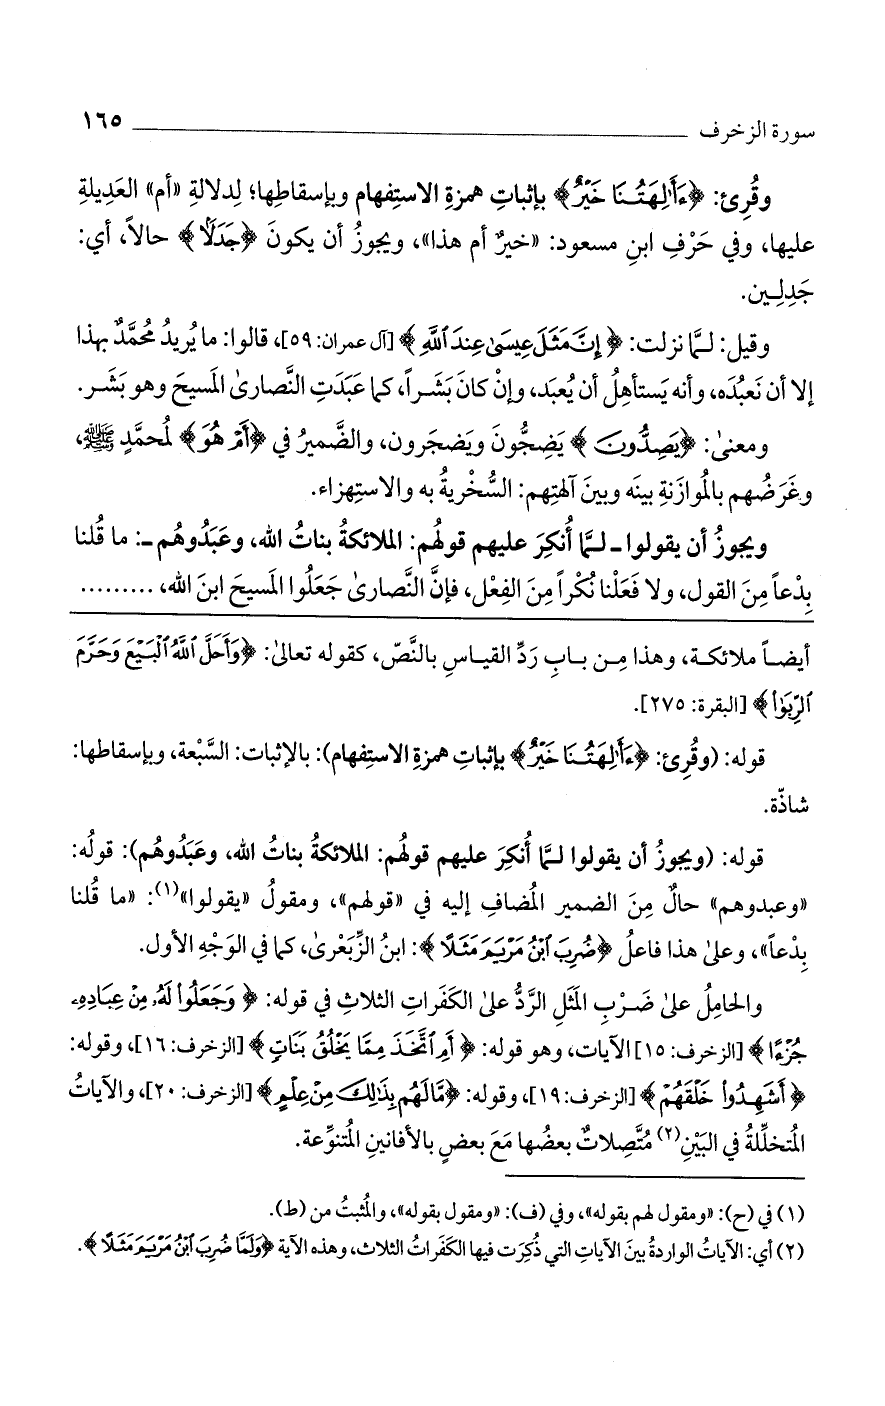 سورة الزخرف ــــــــــــــــــــ ١٦٥
وقُرِئ: ﴿ءَأَٰلِهَتُنَا خَيْرٌ﴾ بإثباتِ همزةِ الاستِفهام وبإسقاطِها؛ لِدلالةِ «أم» العَدِيلةِ
عليها، وفي حَرْفِ ابنِ مسعود: «خيرٌ أم هذا»، ويجوزُ أن يكونَ ﴿جَدَلًا﴾ حالاً، أي:
جَدِلِـين.
وقيل: لـمَّا نزلت: ﴿إِنَّ مَثَلَ عِيسَىٰ عِندَ ٱللَّهِ﴾ [آل عمران: ٥٩]، قالوا: ما يُريدُ مُحمَّدٌ بهذا
إلا أن نَعبُدَه، وأنه يَستأهِلُ أن يُعبَد، وإنْ كانَ بَشَـراً، كما عَبَدَتِ النَّصارىٰ المَسيحَ وهو بَشَـر.
ومعنىٰ: ﴿يَصِدُّونَ﴾ يَضِجُّونَ ويَضجَرون، والضَّميرُ في ﴿أَمْ هُوَ﴾ لمُحمَّدٍ ﷺ،
وغَرَضُهم بالمُوازَنةِ بينَه وبينَ آلهتِهم: السُّخْريةُ به والاستِهزاء.
ويجوزُ أن يقولوا ـ لـمَّا أُنكِرَ عليهم قولُهم: الملائكةُ بناتُ الله، وعَبَدُوهُم ـ: ما قُلنا
بِدْعاً مِنَ القول، ولا فَعَلْنا نُكْراً مِنَ الفِعْل، فإنَّ النَّصارىٰ جَعَلُوا المَسيحَ ابنَ الله، .........
أيضـاً ملائكـة، وهذا مِـن بـابِ رَدِّ القيـاسِ بالنَّصّ، كقوله تعالىٰ: ﴿وَأَحَلَّ ٱللَّهُ ٱلْبَيْعَ وَحَرَّمَ
ٱلرِّبَوٰا۟﴾ [البقرة: ٢٧٥].
قوله: (وقُرِئ: ﴿ءَأَٰلِهَتُنَا خَيْرٌ﴾ بإثباتِ همزةِ الاستِفهام): بالإثبات: السَّبْعة، وبإسقاطها:
شاذّة.
قوله: (ويجوزُ أن يقولوا لـمَّا أُنكِرَ عليهم قولُهم: الملائكةُ بناتُ الله، وعَبَدُوهُم): قولُه:
«وعبدوهم» حالٌ مِنَ الضمير المُضافِ إليه في «قولهم»، ومقولُ «يقولوا»(١): «ما قُلنا
بِدْعاً»، وعلىٰ هذا فاعلُ ﴿ضُرِبَ ٱبْنُ مَرْيَمَ مَثَلًا﴾: ابنُ الزِّبَعْرىٰ، كما في الوَجْهِ الأول.
والحامِلُ علىٰ ضَـرْبِ المَثَلِ الرَّدُّ علىٰ الكَفَراتِ الثلاثِ في قوله: ﴿وَجَعَلُوا۟ لَهُۥ مِنْ عِبَادِهِۦ
جُزْءًا﴾ [الزخرف: ١٥] الآيات، وهو قوله: ﴿أَمِ ٱتَّخَذَ مِمَّا يَخْلُقُ بَنَاتٍ﴾ [الزخرف: ١٦]، وقوله:
﴿أَشَهِدُوا۟ خَلْقَهُمْ﴾ [الزخرف: ١٩]، وقوله: ﴿مَّا لَهُم بِذَٰلِكَ مِنْ عِلْمٍ﴾ [الزخرف: ٢٠]، والآياتُ
المُتخلِّلةُ في البَيْنِ(٢) مُتَّصِلاتٌ بعضُها مَعَ بعضٍ بالأفانينِ المُتنوِّعة.
(١) في (ح): «ومقول لهم بقوله»، وفي (ف): «ومقول بقوله»، والمُثبتُ من (ط).
(٢) أي: الآياتُ الواردةُ بينَ الآياتِ التي ذُكِرَت فيها الكَفَراتُ الثلاث، وهذه الآية ﴿وَلَمَّا ضُرِبَ ٱبْنُ مَرْيَمَ مَثَلًا﴾.